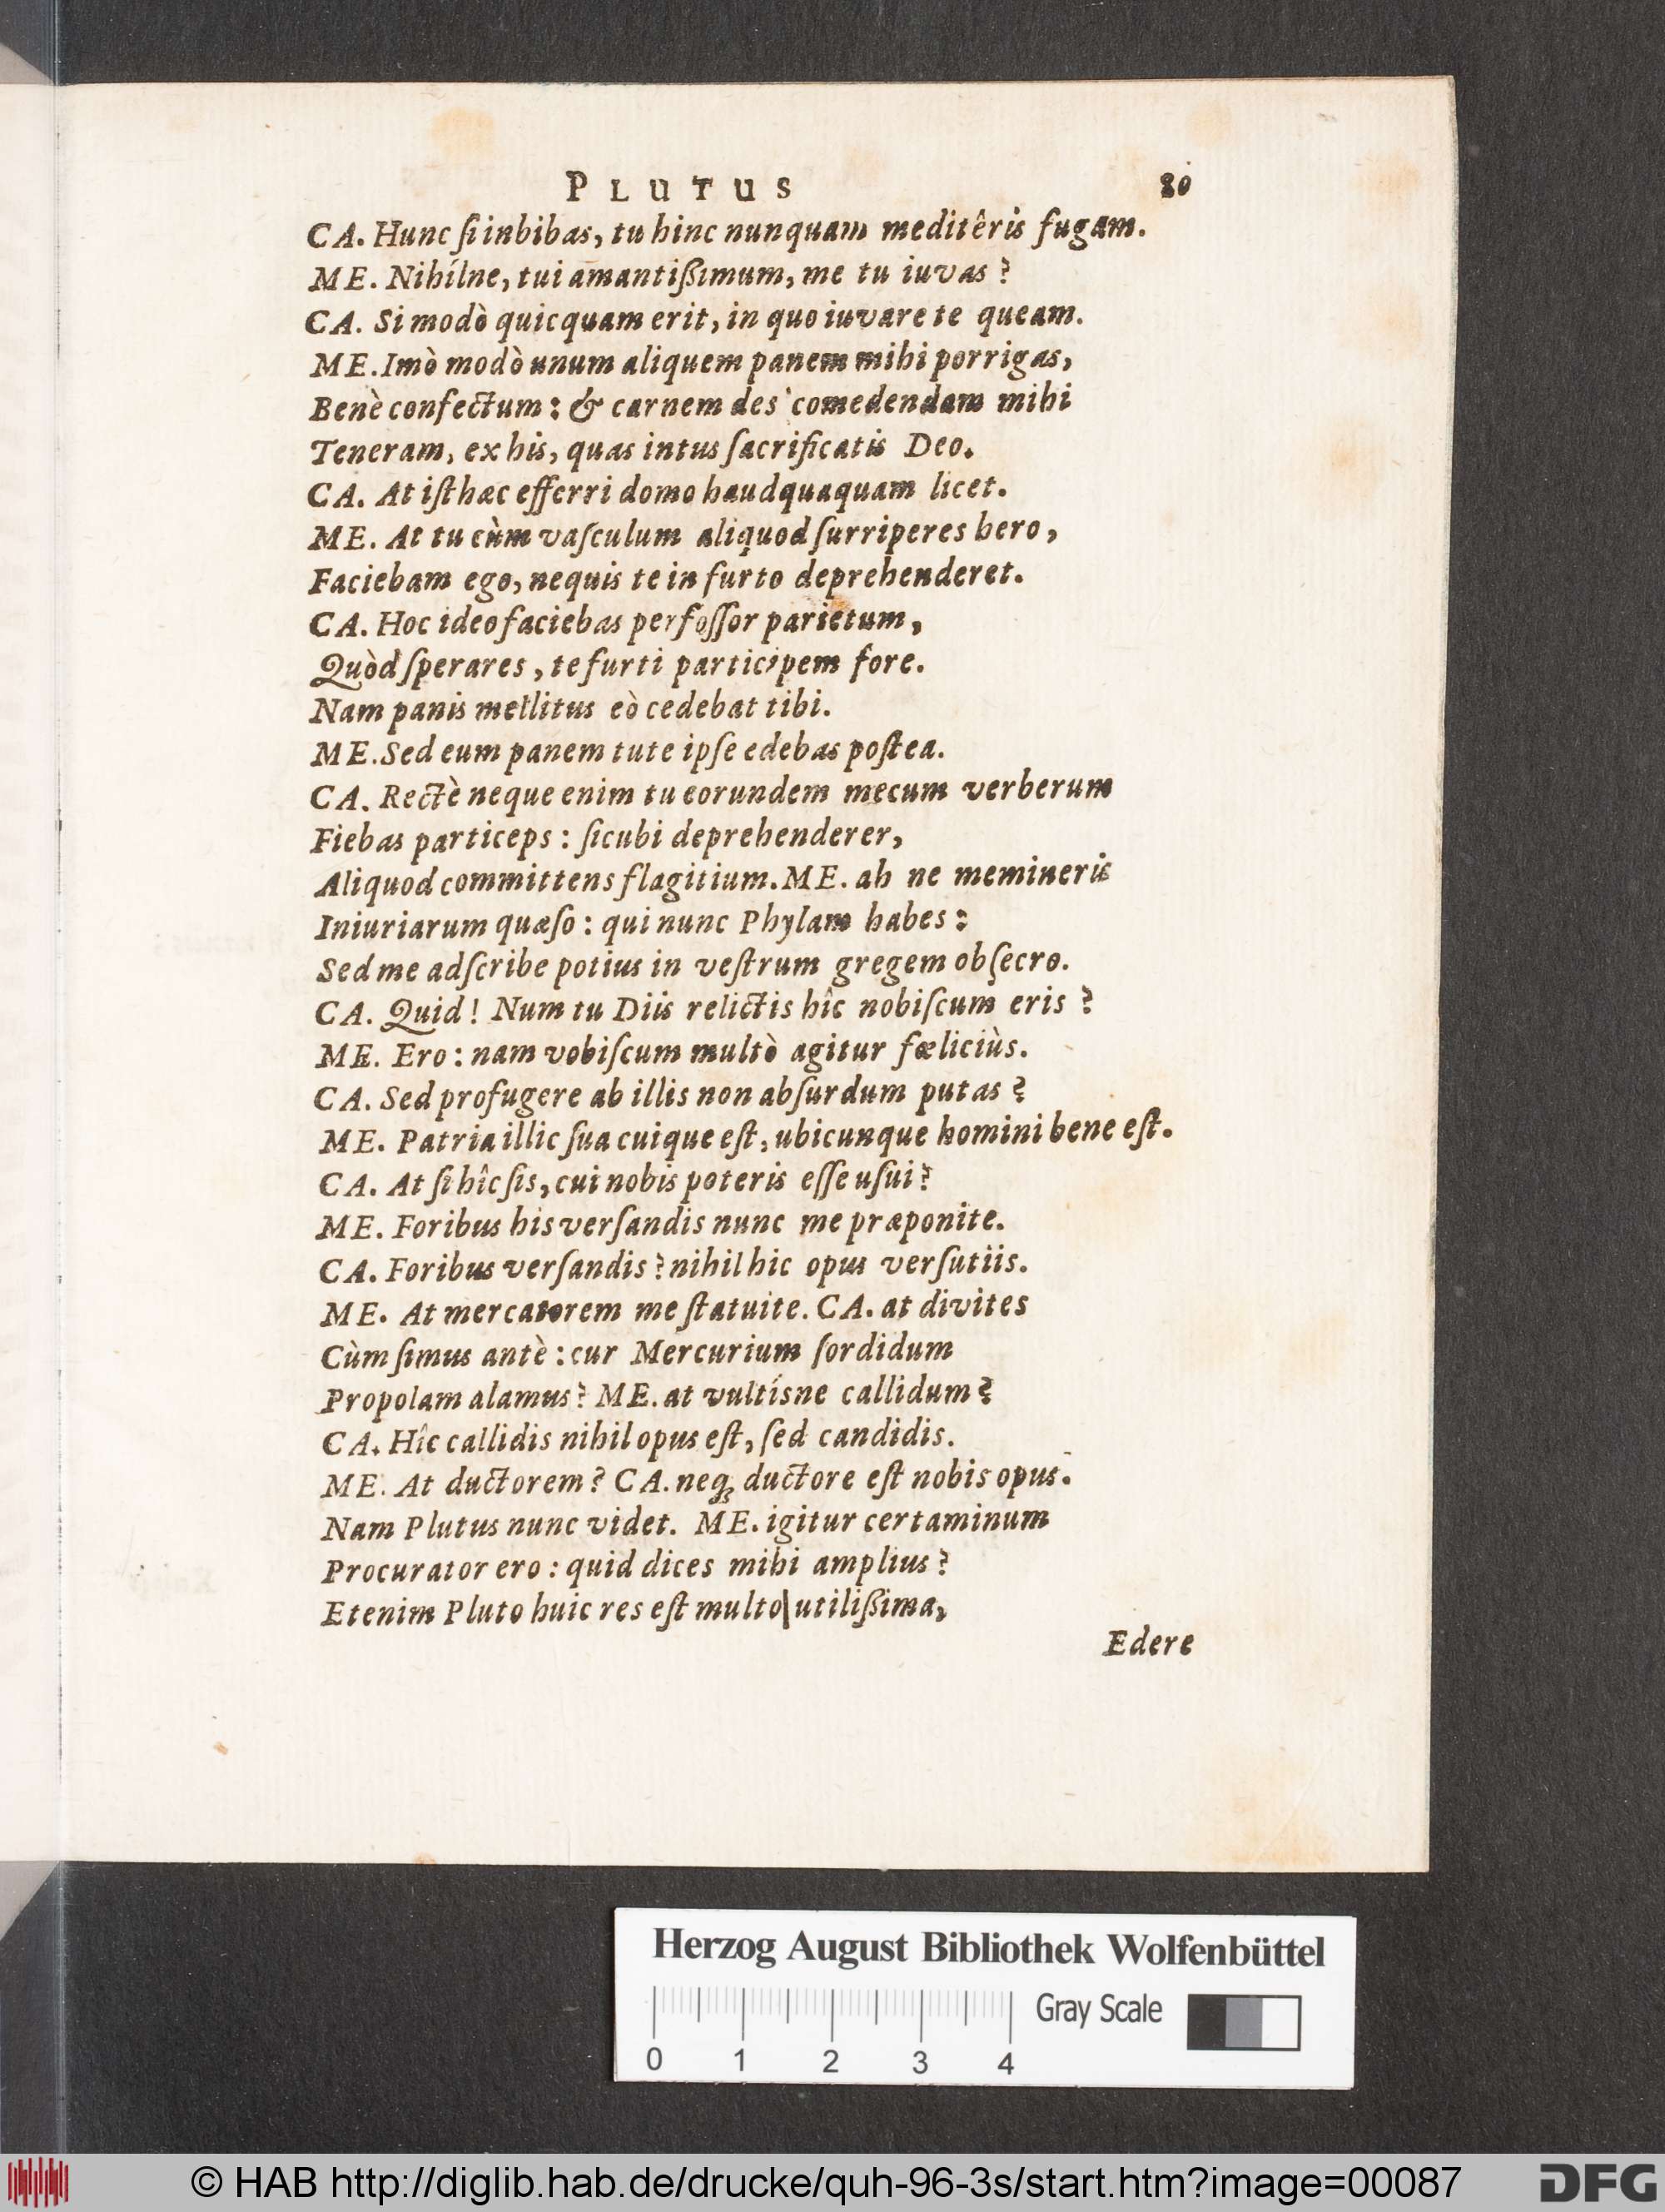 PLUTUS 80
CA. Hunc ſi inbibas, tu hinc nunquam meditêris fugam.
ME. Nihílne, tui amantißimum, me tu iuvas?
CA. Si modò quicquam erit, in quo iuvare te queam.
ME. Imò modò unum aliquem panem mihi porrigas,
Benè confectum: & carnem des comedendam mihi
Teneram, ex his, quas intus ſacrificatis Deo.
CA. At iſthæc efferri domo haudquaquam licet.
ME. At tu cùm vaſculum aliquod ſurriperes hero,
Faciebam ego, nequis te in furto deprehenderet.
CA. Hoc ideo faciebas perfoſſor parietum,
Quòd ſperares, te furti participem fore.
Nam panis mellitus eò cedebat tibi.
ME. Sed eum panem tute ipſe edebas poſtea.
CA. Rectè neque enim tu eorundem mecum verberum
Fiebas particeps: ſicubi deprehenderer,
Aliquod committens flagitium. ME. ah ne memineris
Iniuriarum quæſo: qui nunc Phylam habes:
Sed me adſcribe potius in veſtrum gregem obſecro.
CA. Quid! Num tu Diis relictis hîc nobiſcum eris?
ME. Ero: nam vobiſcum multò agitur fœliciùs.
CA. Sed profugere ab illis non abſurdum putas?
ME. Patria illic ſua cuique eſt, ubicunque homini bene eſt.
CA. At ſi hîc ſis, cui nobis poteris eſſe uſui?
ME. Foribus his verſandis nunc me præponite.
CA. Foribus verſandis? nihil hic opus verſutiis.
ME. At mercatorem me ſtatuite. CA. at divites
Cùm ſimus antè: cur Mercurium ſordidum
Propolam alamus? ME. at vultísne callidum?
CA. Hîc callidis nihil opus eſt, ſed candidis.
ME. At ductorem? CA. neq; ductore eſt nobis opus.
Nam Plutus nunc videt. ME. igitur certaminum
Procurator ero: quid dices mihi amplius?
Etenim Pluto huic res eſt multo utilißima,
Edere
Herzog August Bibliothek Wolfenbüttel
0 1 2 3 4 Gray Scale
© HAB http://diglib.hab.de/drucke/quh-96-3s/start.htm?image=00087 DFG